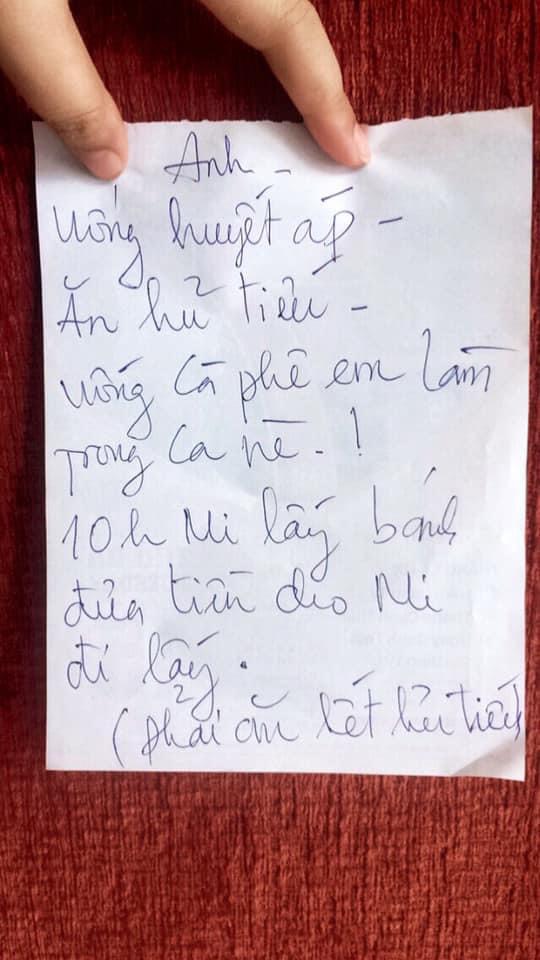 Anh -
Uống huyết áp -
Ăn hủ tiếu -
uống cà phê em làm
trong ca nè - !
10h Mi lấy bánh
đưa tiền cho Mi
đi lấy .
( phải ăn hết hủ tiếu )